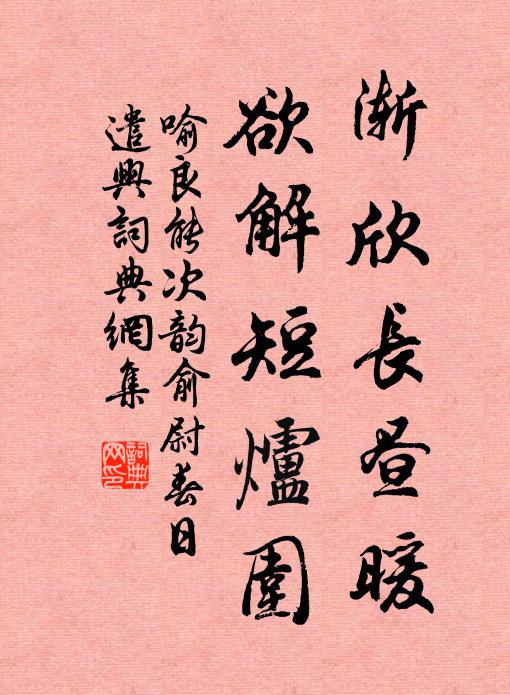 渐欣長昼暖
欲解短爐圍
喻良能次韵俞尉春日
遣興詞典網集
詞典
网印